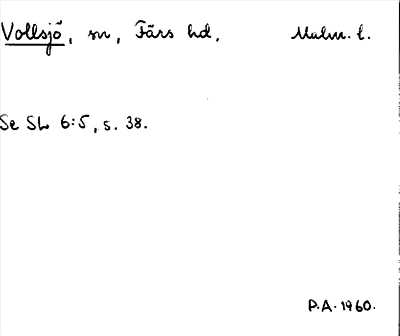 Vollsjö, sn, Färs hd. Malm. l.
Se SL 6:5, s. 38.
P.A. 1960.